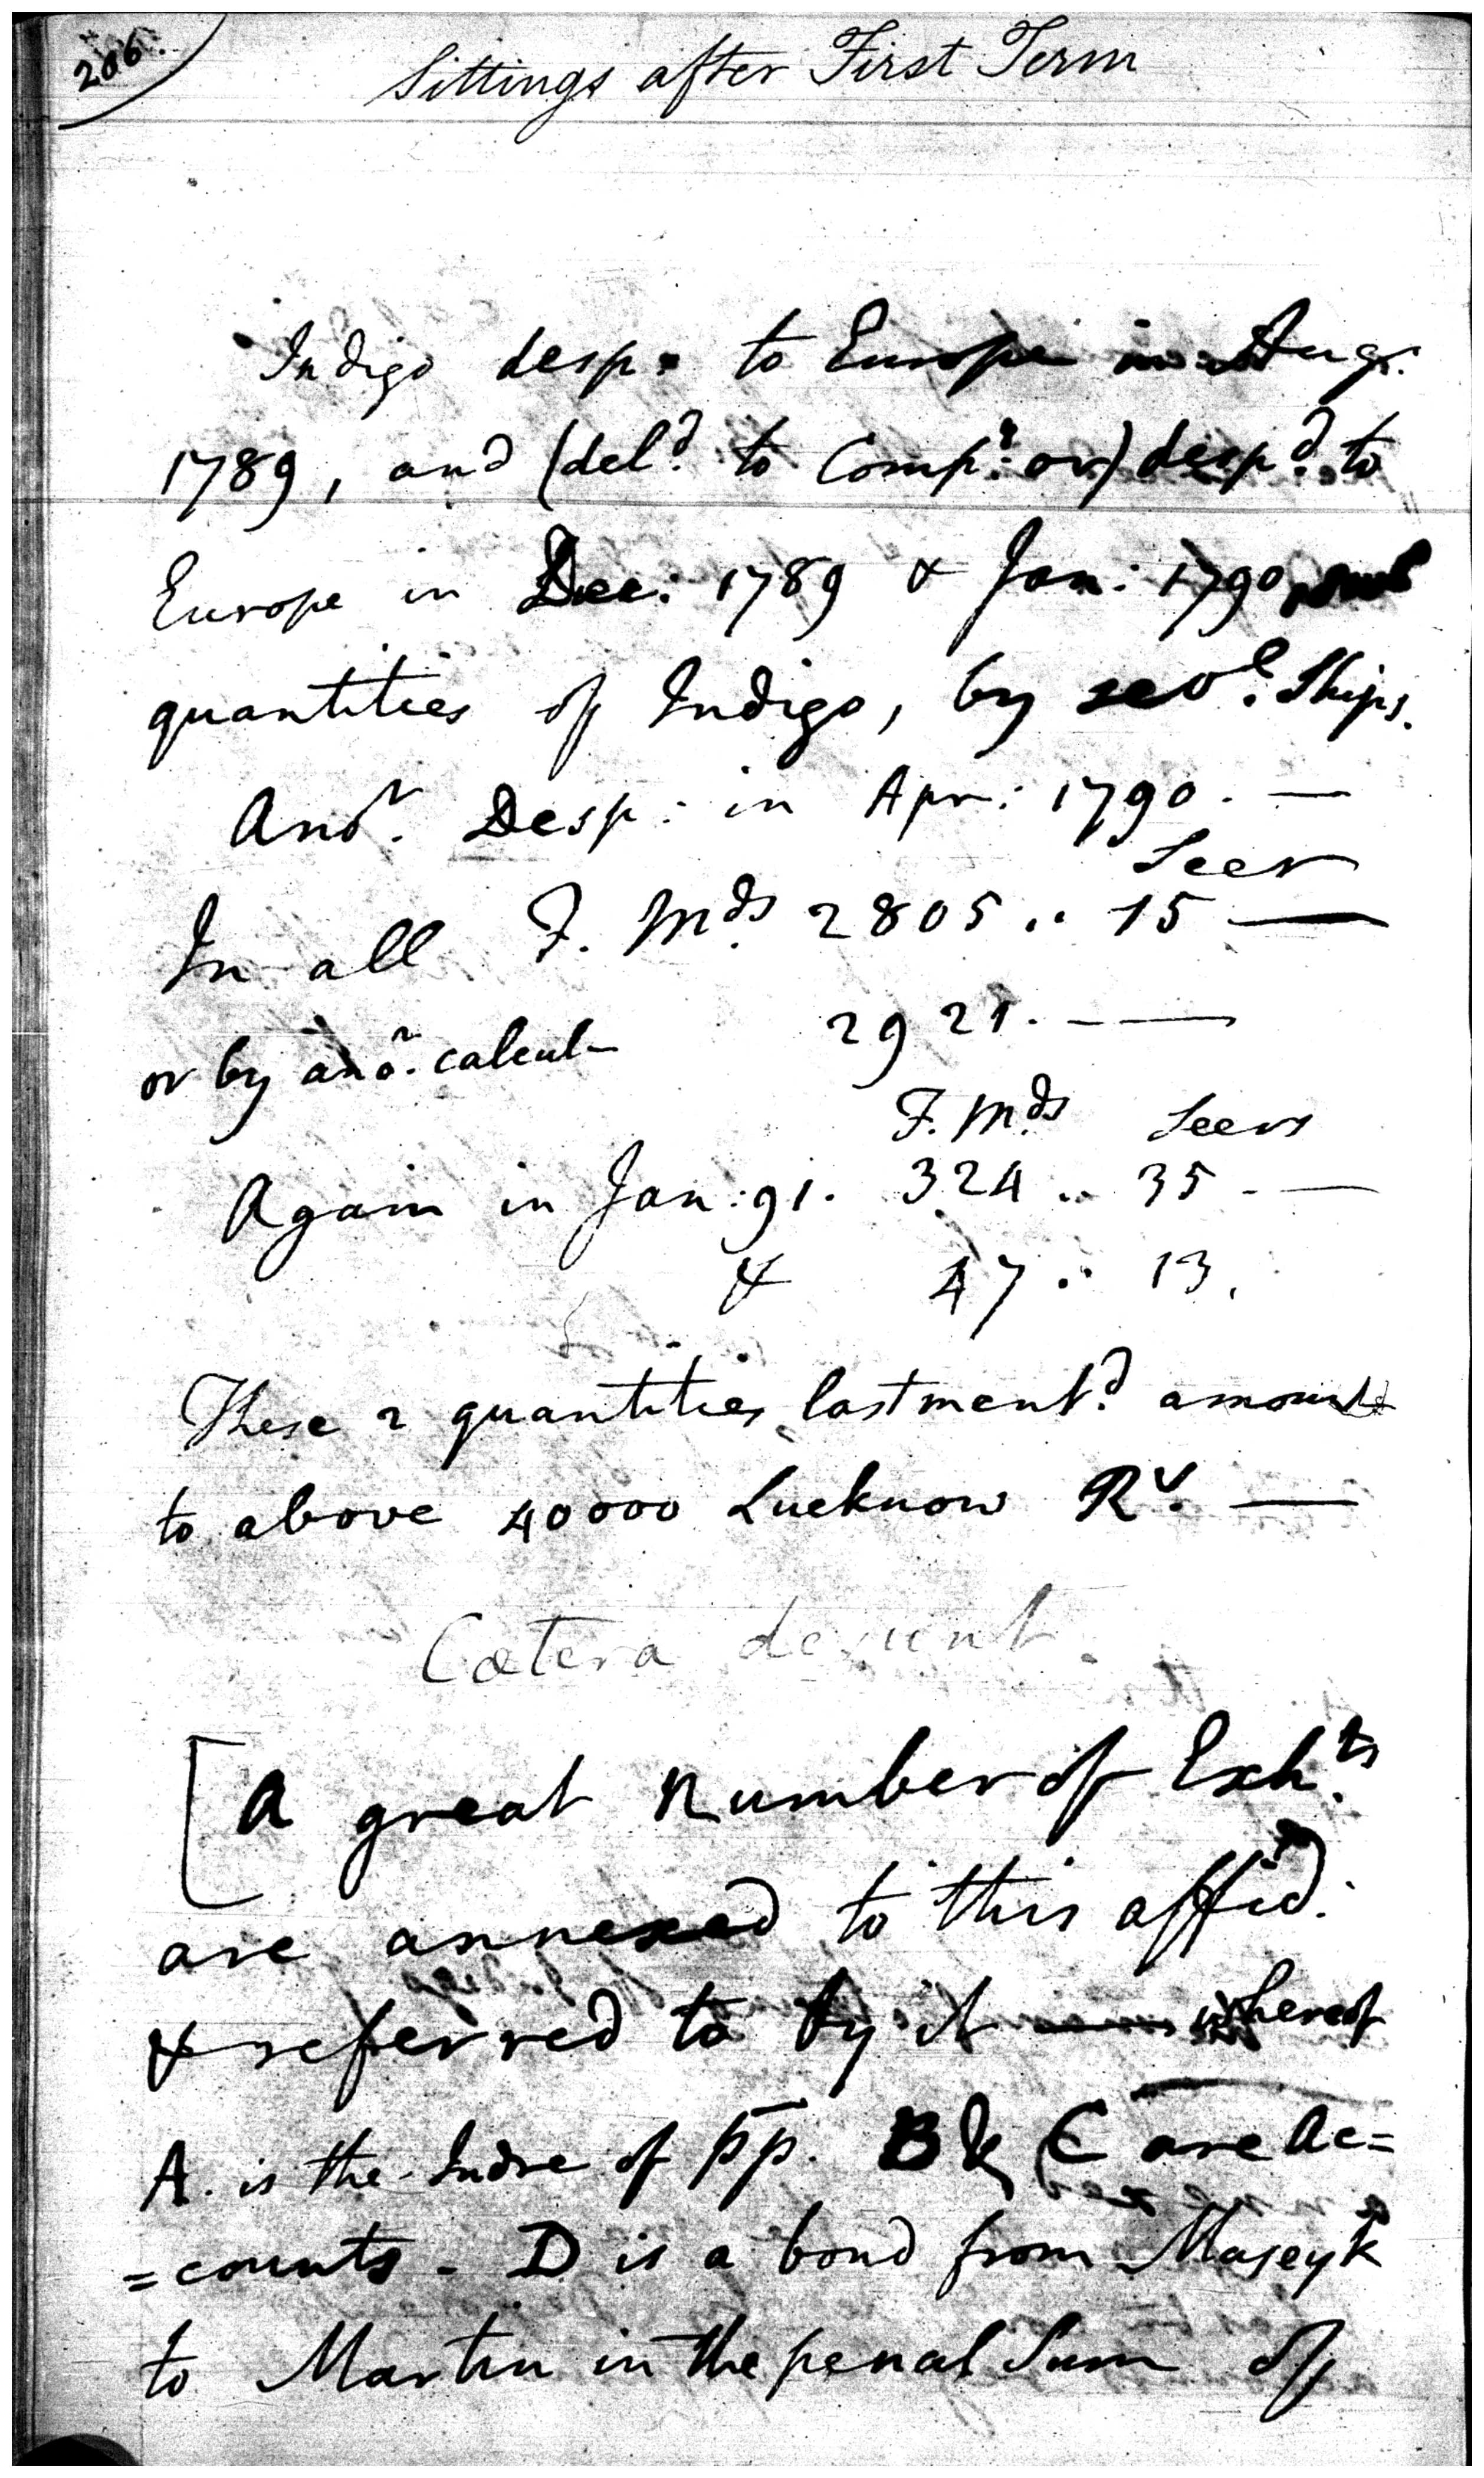 206.
Sittings after First Term
Indigo desp. to Europe in Aug.
1789, and (del.d to Comp.y or) desp.d to
Europe in Dec: 1789 & Jan: 1790,
quantities of Indigo, by sev.l Ships.
Ano.r Desp: in Apr: 1790. —
Seer
In all F. M.ds 2805 .. 15 —
or by ano.r calcul- 2921. —
F. M.ds Seers
Again in Jan: 91. 324 .. 35 . —
& 47 .. 13.
These 2 quantities last ment.d amount
to above 40000 Lucknow R.s —
Cætera desunt.
[A great number of Exh.ts
are annexed to this affid:
& referred to by it whereof
A. is the Indre of pp. B & C are Ac=
=counts - D is a bond from Maseyk
to Martin in the penal Sum of